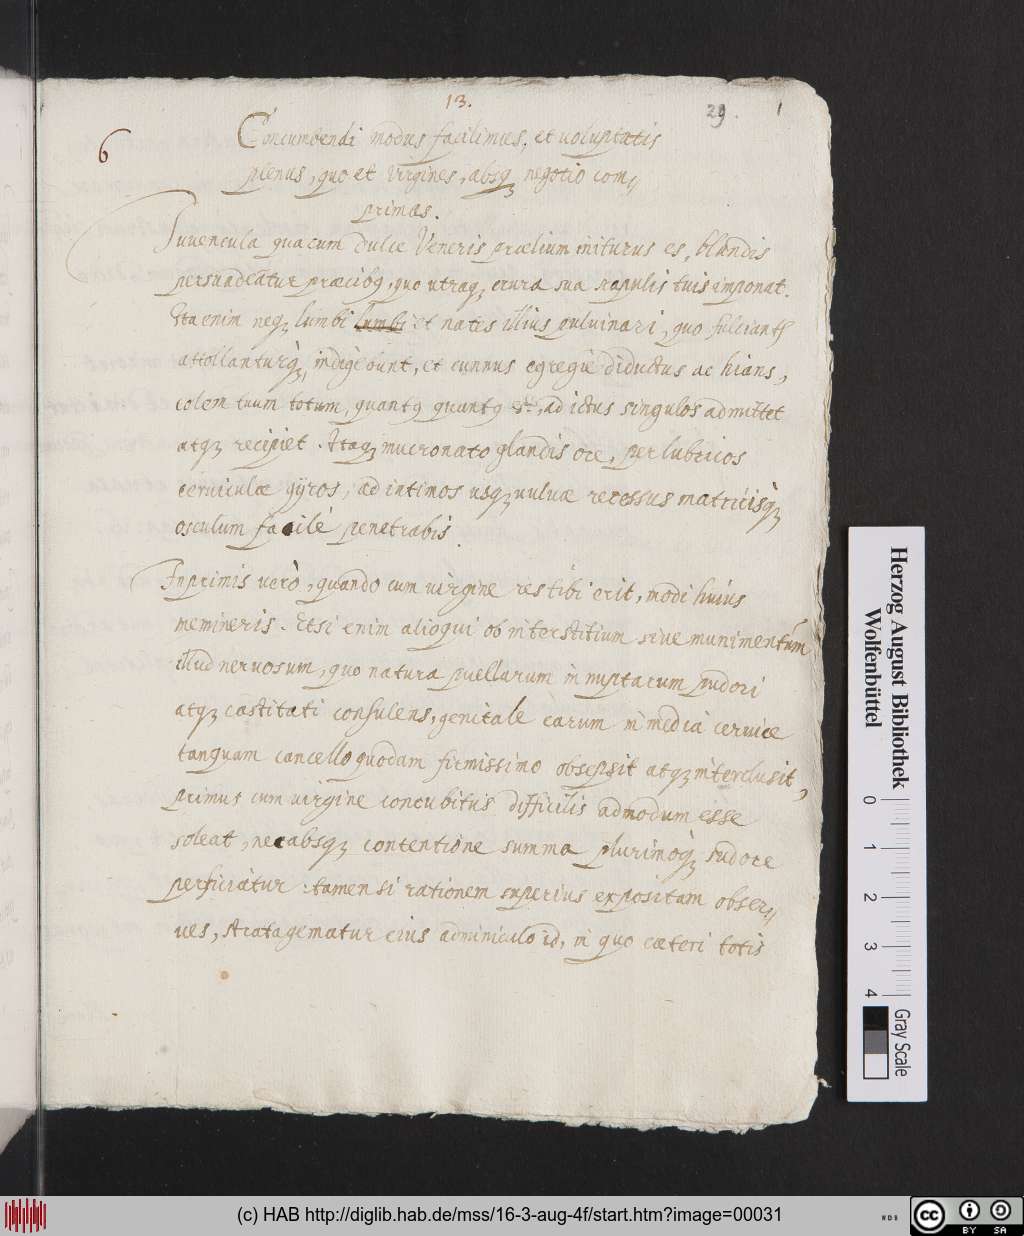 13.
29. 1
6
Concumbendi modus facilimus, et voluptatis
plenus, quo et virgines, absq₃ negotio com„
primas.
Juuencula quacum dulce Veneris prælium initurus es, blandis
persuadeatur præcibq, quo utraq₃ crura sua scapulis tuis imponat.
Ita enim neq₃ lumbi lumbi et nates illius puluinari, quo fulciant
attollanturq₃, indigebunt, et cunnus egregiè diductus ac hians,
colem tuum totum, quantq quantq &c., ad ictus singulos admittet
atq₃ recipiet. Itaq₃ mucronato glandis ore, per lubricos
ceruiculæ gyros, ad intimos usq₃ uuluæ recessus matricisq₃
osculum facilè penetrabis.
Inprimis verò, quando cum virgine res tibi erit, modi huius
memineris. Etsi enim alioqui ob interstitium siue munimentum
illud neruosum, quo natura puellarum innuptarum pudori
atq₃ castitati consulens, genitale earum in media ceruice
tanquam cancello quodam firmissimo obsepsit atq₃ interclusit,
primus cum virgine concubitus difficilis admodum esse
soleat, nec absq₃ contentione summa plurimoq₃ sudore
perficiatur: tamen si rationem superius expositam obser„
ues, stratagematur eius adminiculo id, in quo cæteri totis
Herzog August Bibliothek
Wolfenbüttel
0 1 2 3 4
Gray Scale
(c) HAB http://diglib.hab.de/mss/16-3-aug-4f/start.htm?image=00031
WDB
cc BY SA